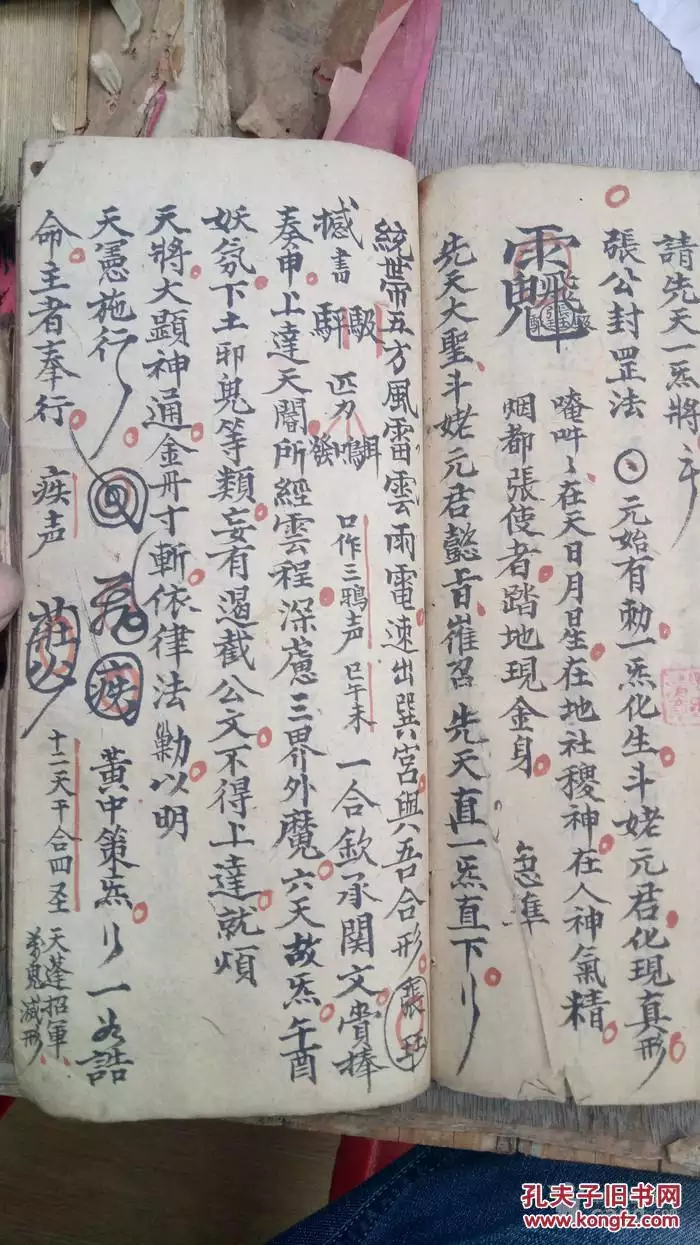 請先天一炁將
張公封罡法 元始有勅一炁化生斗姥元君化現真形
唵吽〻在天日月星在地社稷神在人神氣精
烟都張使者踏地現金身 急準
先天大聖斗姥元君懿旨嶊召先天直一炁直下
統帶五方風雷雲雨電速出巽宮與吾合形 張珏
撼書 口作三鴉声 巳午未 一合欽承関文賫捧
奏申上達天閽所經雲程深慮三界外魔六天故炁午酉
妖氛下土邪鬼等類妄有遏截公文不得上達就煩
天將大顯神通金冊寸斬依律法勦以明
天憲施行 黃中策炁 一如誥
命主者奉行 疾声 十二天干合四圣 天蓬招軍
鬼滅形
孔夫子旧书网
www.kongfz.com